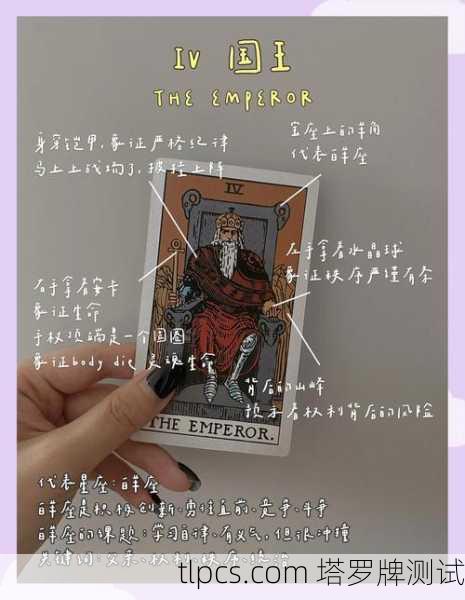 IV 国王
THE EMPEROR
身穿铠甲,象征严格纪律
马上上战场了,披挂上阵
宝座上的羊角
代表白羊座
IV
左手拿着水晶球
象征秩序严谨有条
右手拿着安卡
象征生命
手权顶端是一个圆圈
象征body die 灵魂生命
背后的山峰
预示着权利背后的风险
THE EMPEROR.
代表星座:白羊座
白羊座是积极创新.勇往直前.竞争.斗争
白羊座的课题:学习自律、有义气,但很冲撞
关键词:父亲、权利、秩序、统治
tlpcs.com 塔罗牌测试